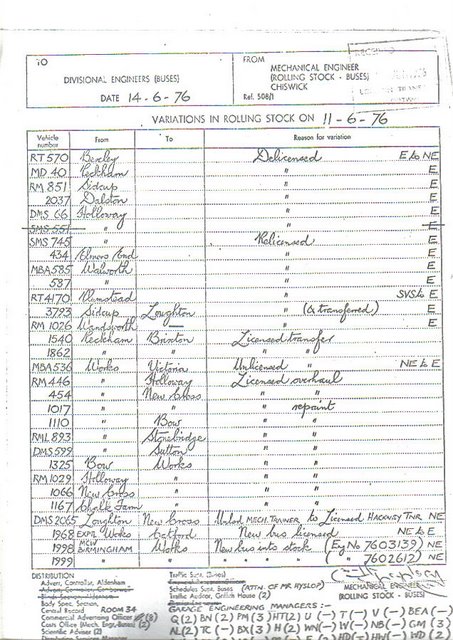 TO
DIVISIONAL ENGINEERS (BUSES)
DATE 14-6-76
FROM
MECHANICAL ENGINEER
(ROLLING STOCK - BUSES)
CHISWICK
Ref. 508/1
VARIATIONS IN ROLLING STOCK ON 11-6-76
Vehicle number From To Reason for variation
RT 570 Bexley Delicensed E to NE
MD 40 Peckham " E
RM 851 Sidcup " E
2037 Dalston " E
DMS 66 Holloway " E
SMS 551 " " E
SMS 745 " Relicensed E
434 Elmers End " E
MBA 585 Walworth " E
587 " " E
RT 4170 Plumstead " SVS to E
3793 Sidcup Loughton " (& transferred) E
RM 1026 Wandsworth — " E
1540 Peckham Brixton Licensed transfer
1862 " " " "
MBA 536 Works Victoria Unlicensed " NE to E
RM 446 " Holloway Licensed overhaul
454 " New Cross " "
1017 " " " repaint
1110 " Bow " "
RML 893 " Stonebridge " "
DMS 599 " Sutton " "
1325 Bow Works " "
RM 1029 Holloway " " "
1066 New Cross " " "
1167 Chalk Farm " " "
DMS 2065 Loughton New Cross MECH. TRAINER to Licensed HACKNEY TNR NE
1968 Works Catford New bus licensed NE to E
1998 MCW BIRMINGHAM Works New bus into stock (Eng No 7603139) NE
1999 " " " ( " 7602612) NE
DISTRIBUTION
Body Spec. Section,
Central Record ROOM 34
Commercial Advertising Officer (8)
Costs Office (Mech. Engr. Buses) (2)
Scientific Adviser (2)
Schedules Supt. Buses (ATTN. OF MR HYSLOP)
Traffic Auditor, Griffith House (2)
MECHANICAL ENGINEER
(ROLLING STOCK - BUSES)
GARAGE ENGINEERING MANAGERS :-
Q(2) BN(2) PM(3) HT(2) U(-) T(-) V(-) BEA(-)
AL(2) TC(-) BX(3) H(2) WN(-) W(-) N(-) GM(3)